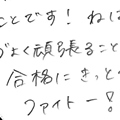 ことです！ねは
づよく頑張ること
合格にきっと
ファイトー！